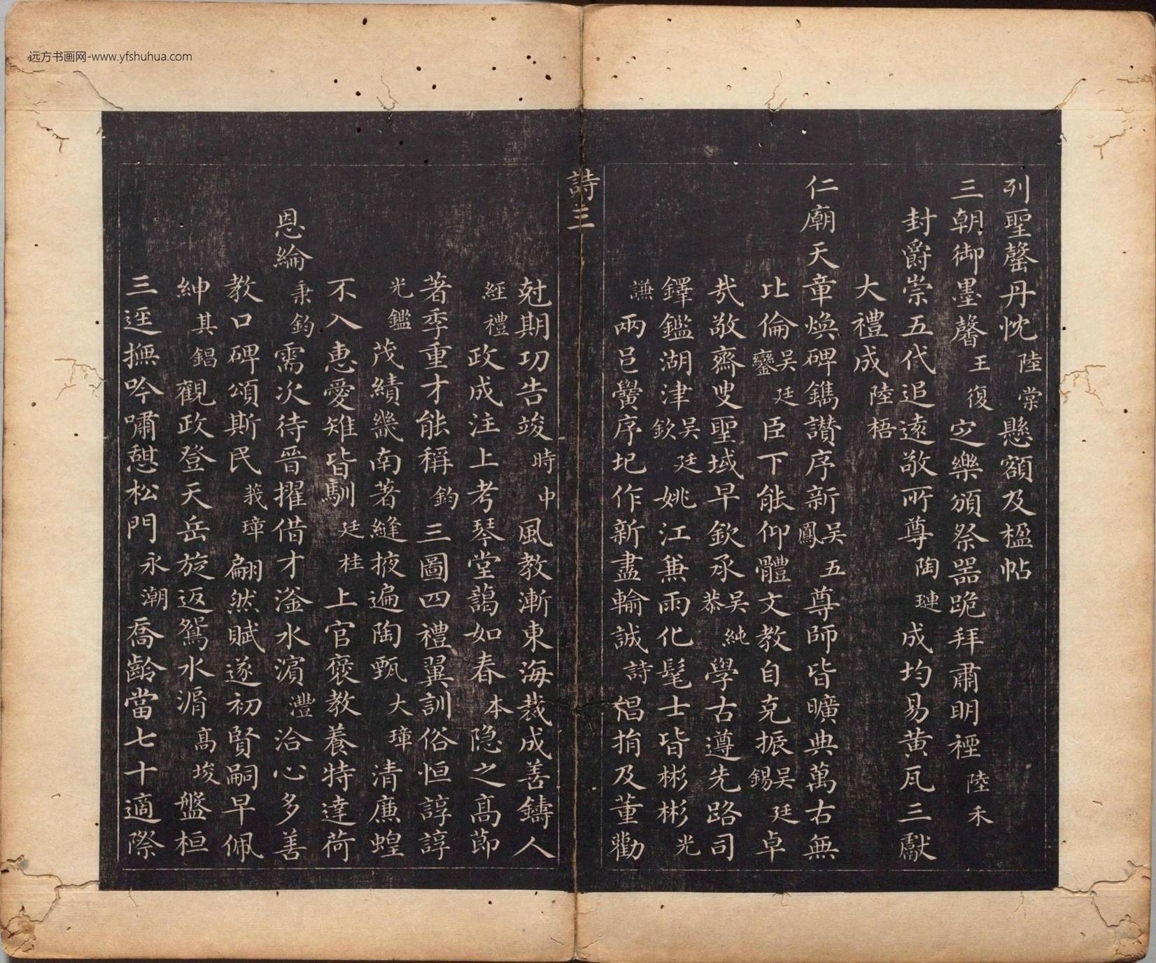 远方书画网-www.yfshuhua.com
列聖罄丹忱陸棠懸額及楹帖
三朝御墨馨王復定樂頒祭器跪拜肅明禋陸禾
封爵崇五代追遠敬所尊陶璉成均易黃瓦三獻
大禮成陸梧
仁廟天章煥碑鐫讃序新吳鳳五尊師皆曠典萬古無
比倫吳鑾廷臣下能仰體文教自克振吳錫廷卓
哉敬齋叟聖域早欽承吳恭純學古遵先路司
鐸鑑湖津吳欽廷姚江兼雨化髦士皆彬彬光
謙兩邑黌序圮作新盡輸誠詩倡捐及董勸
詩三
尅期功告竣時中風教漸東海裁成善鑄人
經禮政成注上考琴堂藹如春本隐之高節
著季重才能稱鈞三圖四禮翼訓俗恒諄諄
光鑑茂績畿南著縫掖遍陶甄大璋清廉蝗
不入惠愛雉皆馴廷桂上官褒教養特達荷
恩綸秉鈞需次待晋擢借才滏水濱灃洽心多善
教口碑頌斯民莪璋翩然賦遂初賢嗣早佩
紳其錩觀政登天岳旋返鴛水湄高埈盤桓
三逕撫吟嘯憇松門永潮喬齡當七十適際